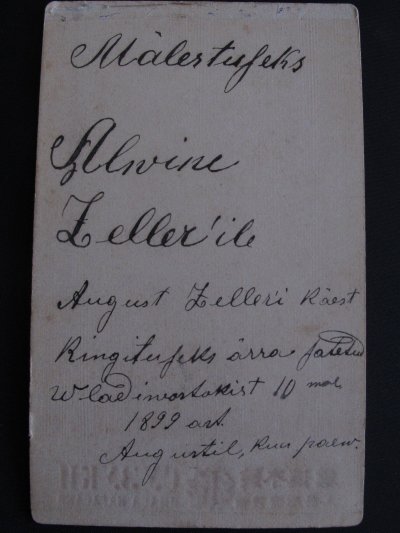 Mälestuseks
Alwine
Zeller'ile
August Zelleri käest
Kingituseks ärra satetud
Wladiwostokist 10 mal
1899 ast.
Augustil, kuu paew.